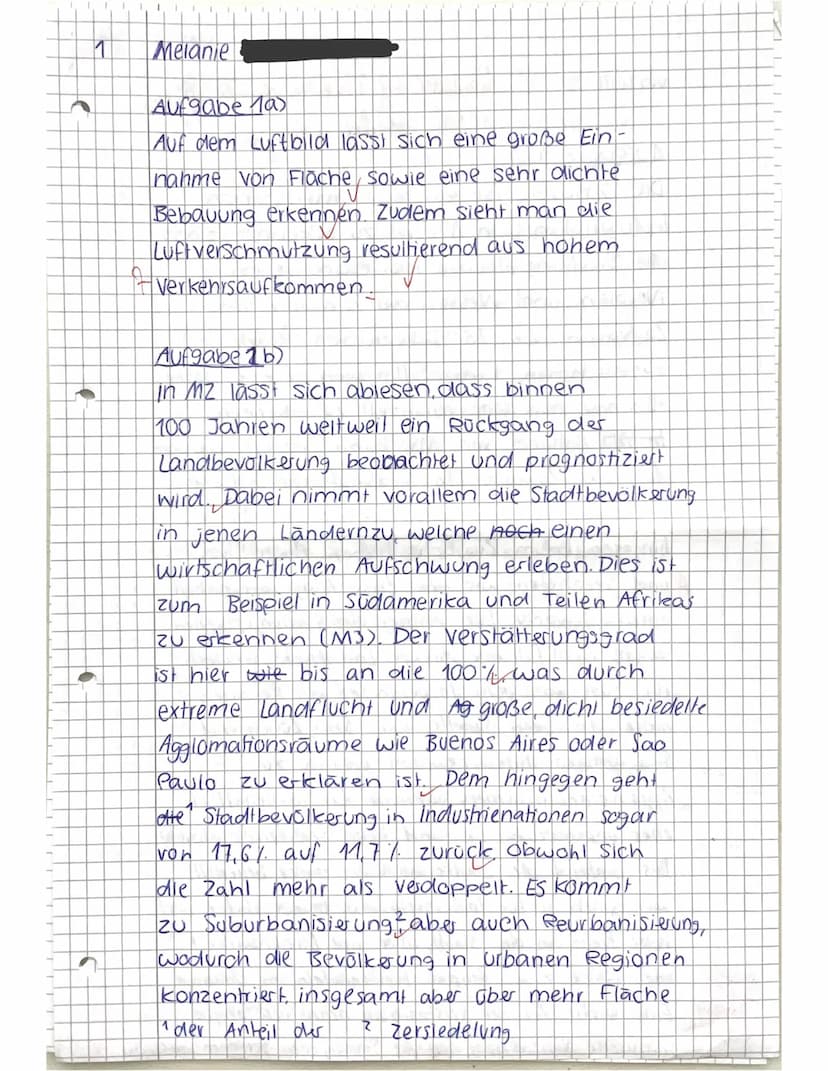 1 Melanie
Aufgabe 1a)
Auf dem Luftbild lässt sich eine große Ein-
nahme von Fläche, sowie eine sehr dichte
Bebauung erkennen. Zudem sieht man die
Luftverschmutzung resultierend aus hohem
Verkehrsaufkommen.
Aufgabe 1b)
In M2 lässt sich ablesen, dass binnen
100 Jahren weltweit ein Rückgang der
Landbevölkerung beobachtet und prognostiziert
wird. Dabei nimmt vorallem die Stadtbevölkerung
in jenen Ländern zu, welche noch einen
wirtschaftlichen Aufschwung erleben. Dies ist
zum Beispiel in Südamerika und Teilen Afrikas
zu erkennen (M3). Der Verstätterungsgrad
ist hier wie bis an die 100%, was durch
extreme Landflucht und Ag große, dicht besiedelte
Agglomationsräume wie Buenos Aires oder Sao
Paulo zu erklären ist. Dem hingegen geht
die¹ Stadtbevölkerung in Industrienationen sogar
von 17,6% auf 11,7% zurück, obwohl sich
die Zahl mehr als verdoppelt. Es kommt
zu Suburbanisierung², aber auch Reurbanisierung,
wodurch die Bevölkerung in urbanen Regionen
konzentriert, insgesamt aber über mehr Fläche
¹ der Anteil der ² Zersiedelung